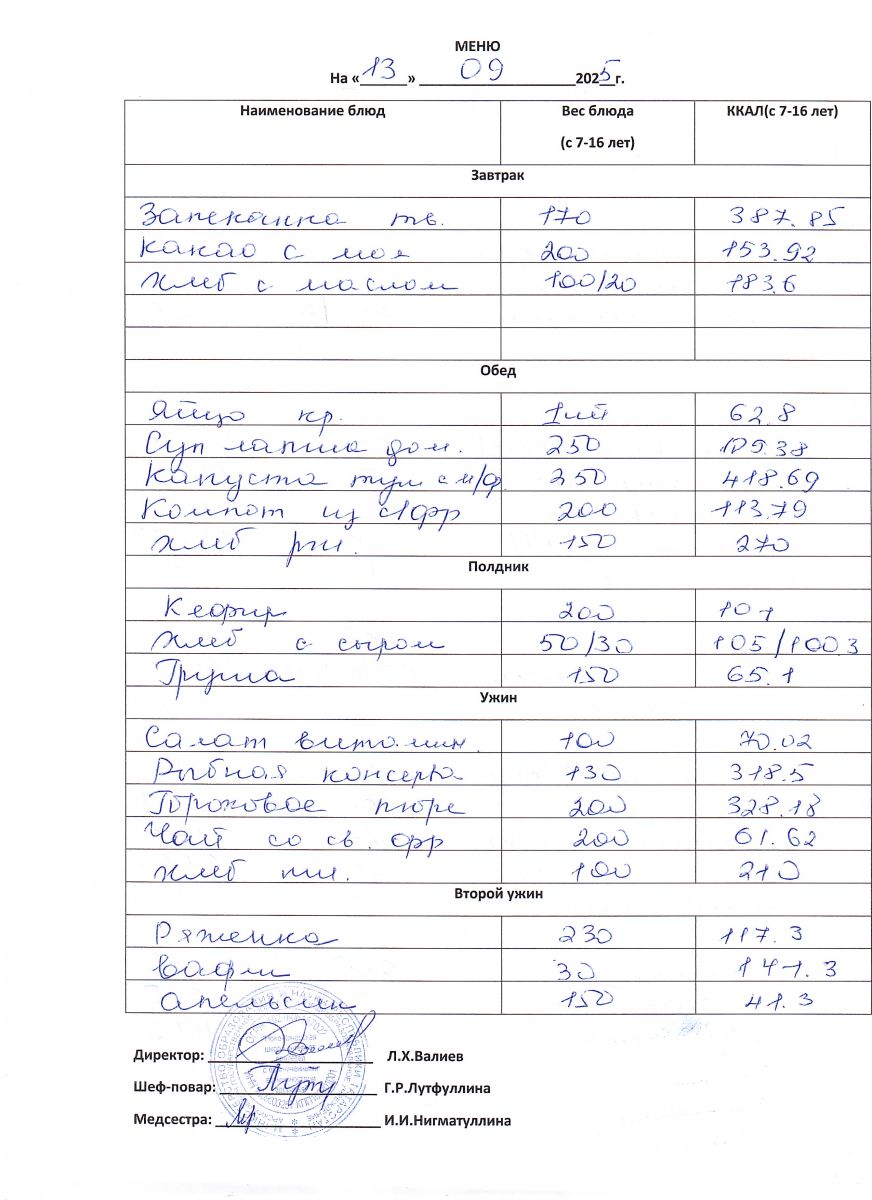 МЕНЮ
На « 13 » 09 2025 г.
Наименование блюд Вес блюда (с 7-16 лет) ККАЛ(с 7-16 лет)
Завтрак
Запеканка тв. 170 387.85
Какао с мол 200 153.92
Хлеб с маслом 100/20 183.6
Обед
Яйцо кр. 1шт 62.8
Суп лапша дом. 250 109.38
Капуста туш с м/ф 250 418.69
Компот из с/фр 200 113.79
Хлеб рж. 150 270
Полдник
Кефир 200 101
Хлеб с сыром 50/30 105/100.3
Груша 150 65.1
Ужин
Салат витамин. 100 70.02
Рыбная консерва 130 318.5
Гороховое пюре 200 328.18
Чай со св. фр 200 61.62
Хлеб пш. 100 210
Второй ужин
Ряженка 230 117.3
Вафли 30 141.3
Апельсин 150 41.3
Директор: Л.Х.Валиев
Шеф-повар: Г.Р.Лутфуллина
Медсестра: И.И.Нигматуллина